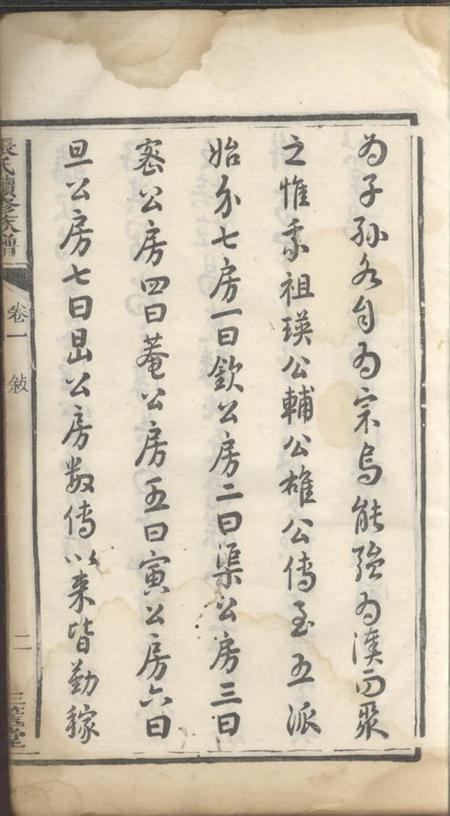 為子孫各自為宗烏能強為渙而聚
之惟吾祖瑛公輔公雄公傳至五派
始分七房一曰欽公房二曰渠公房三曰
密公房四曰菴公房五曰寅公房六曰
旦公房七曰昆公房数傳以来皆勤稼
張氏續修族譜
卷一
敘
二
三箴堂